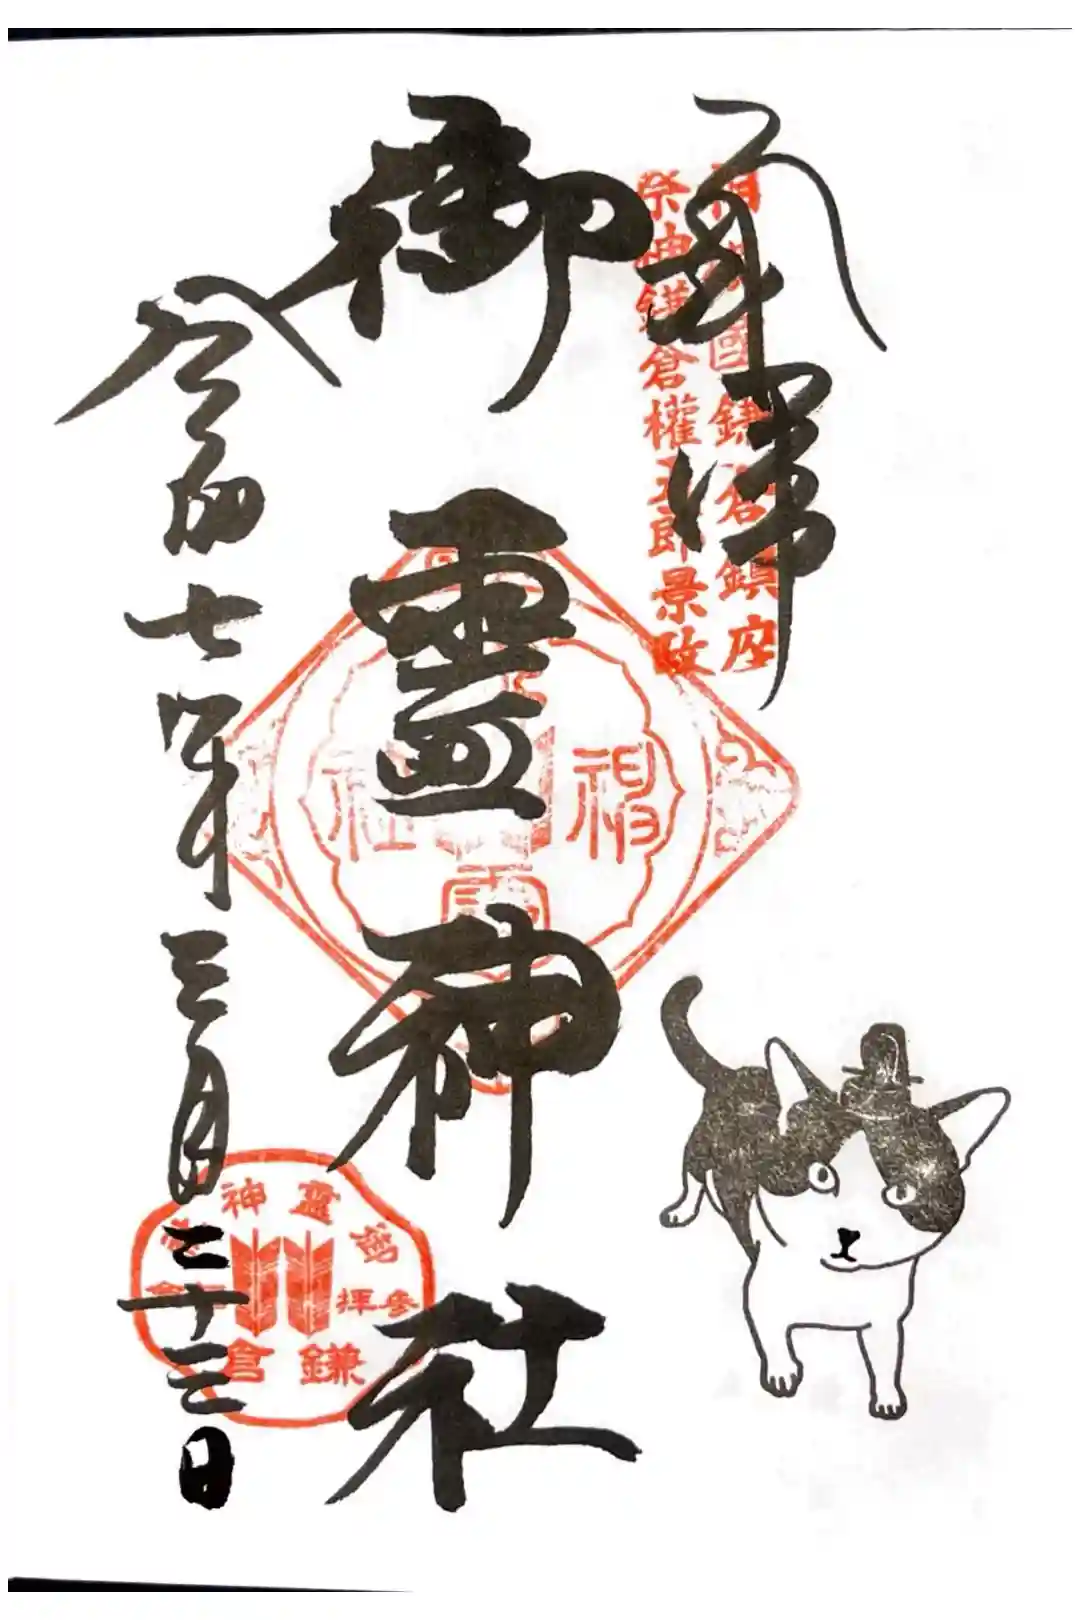 奉拝
相模國鎌倉鎮座
祭神鎌倉權五郎景政
御霊神社
神
社
靈
令和七年三月二十三日
御靈神社
參拝
鎌倉